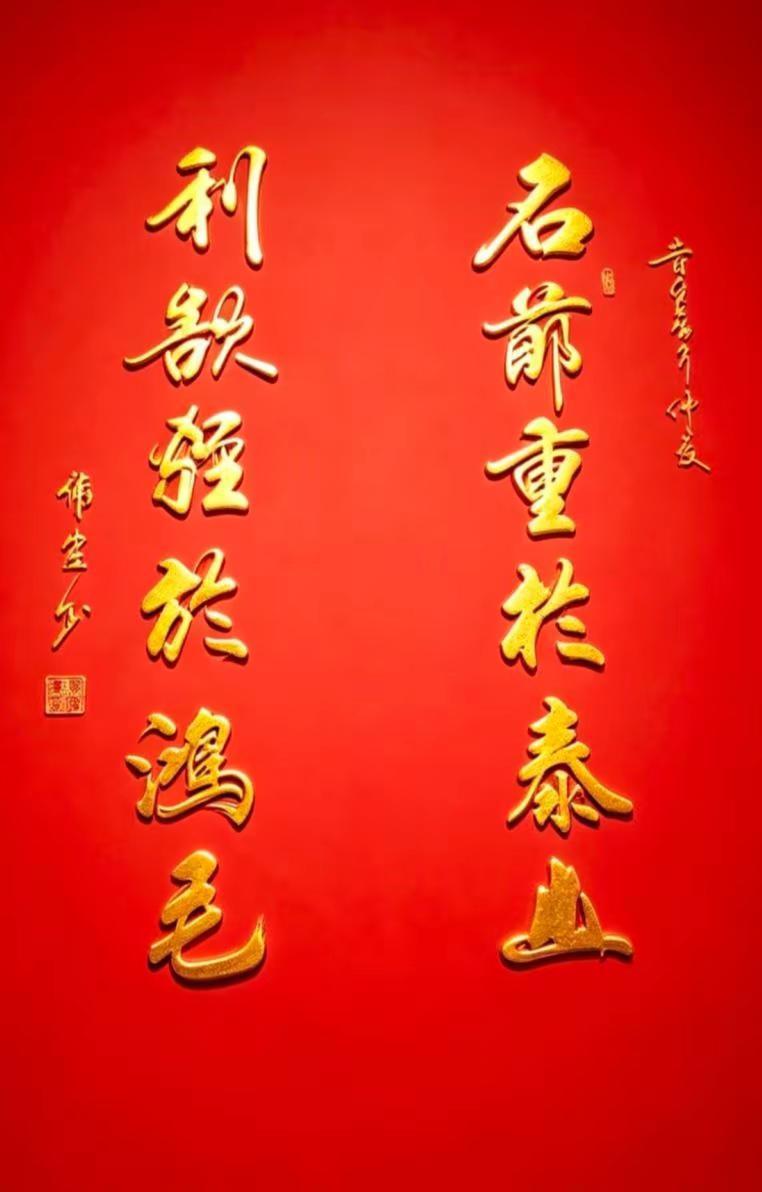 仲夏
名節重於泰山
利欲輕於鴻毛